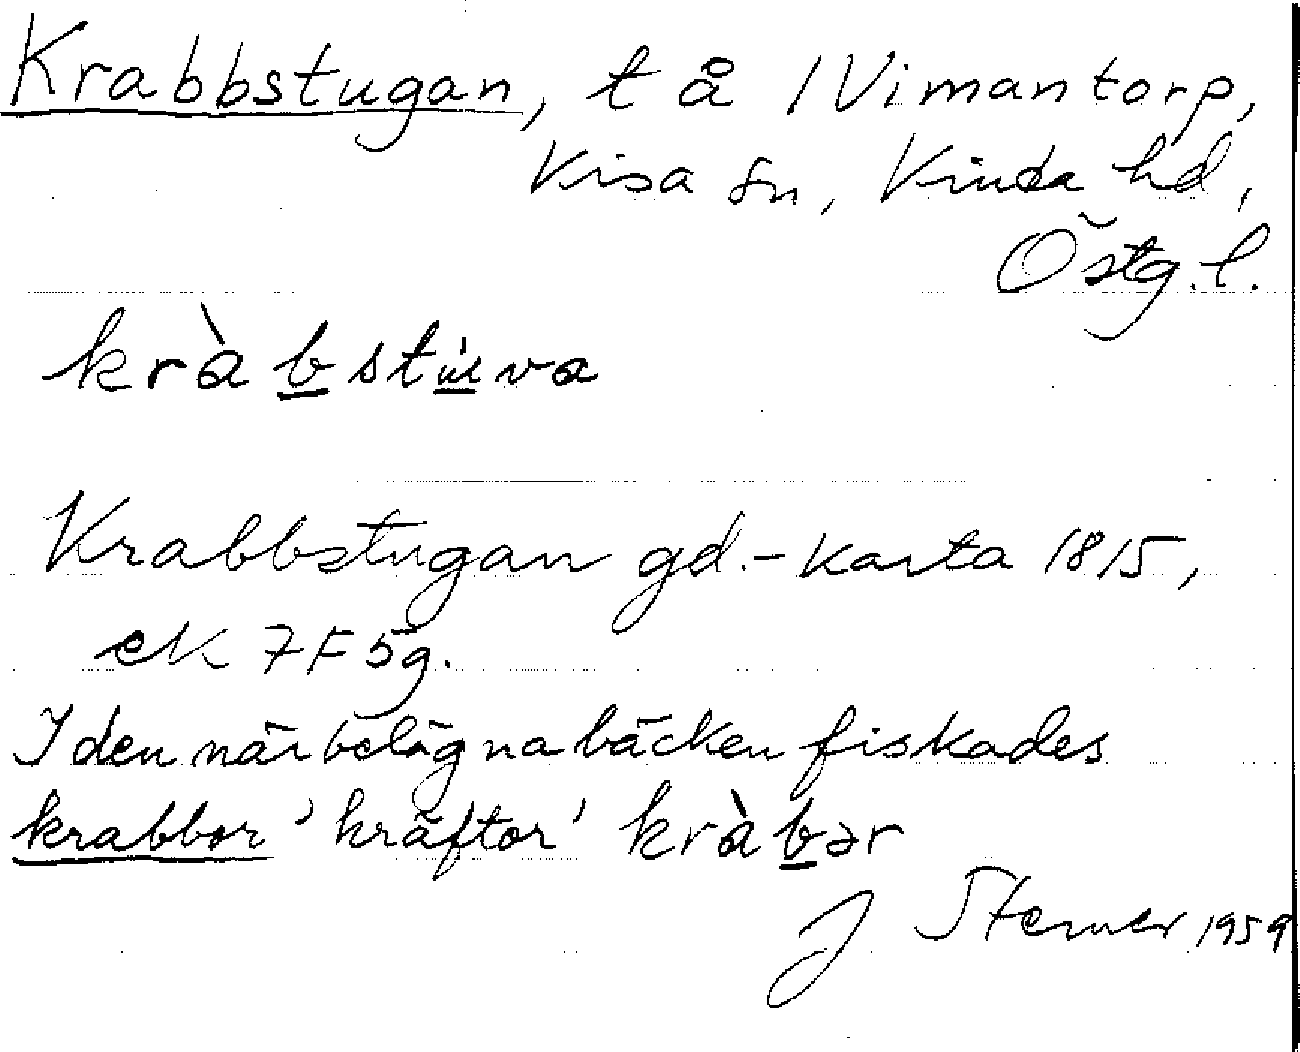 Krabbstugan, t å 1 Vimantorp,
Kisa sn, Kinda hd,
Östg. l.
kràbstu̇va
Krabbstugan gd. - karta 1815,
ek 7F5g.
I den närbelägna bäcken fiskades
krabbor 'kräftor' kràbər
J Sterner 1959